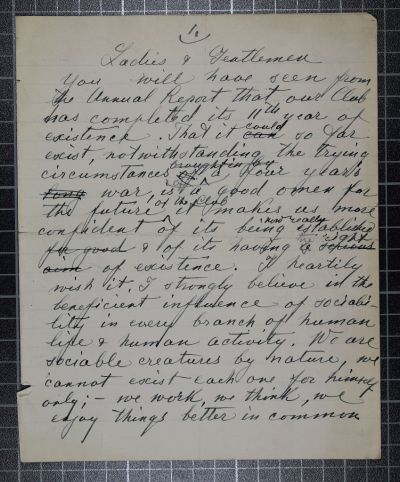 1.
Ladies & Gentlemen
You will have seen from
the Annual Report that our Club
has completed its 11th year of
existence. That it could can so far
exist, notwithstanding the trying
circumstances brought in by of a four years
long war, is a good omen for
the future of the Club it makes us more
confident of its being now really established
for good & of its having a serious
aim of existence. I heartily
wish it, I strongly believe in the
beneficient influence of sociabi-
lity in every branch of human
life & human activity. We are
sociable creatures by nature, we
cannot exist each one for himself
only; - we work, we think, we
enjoy things better in common